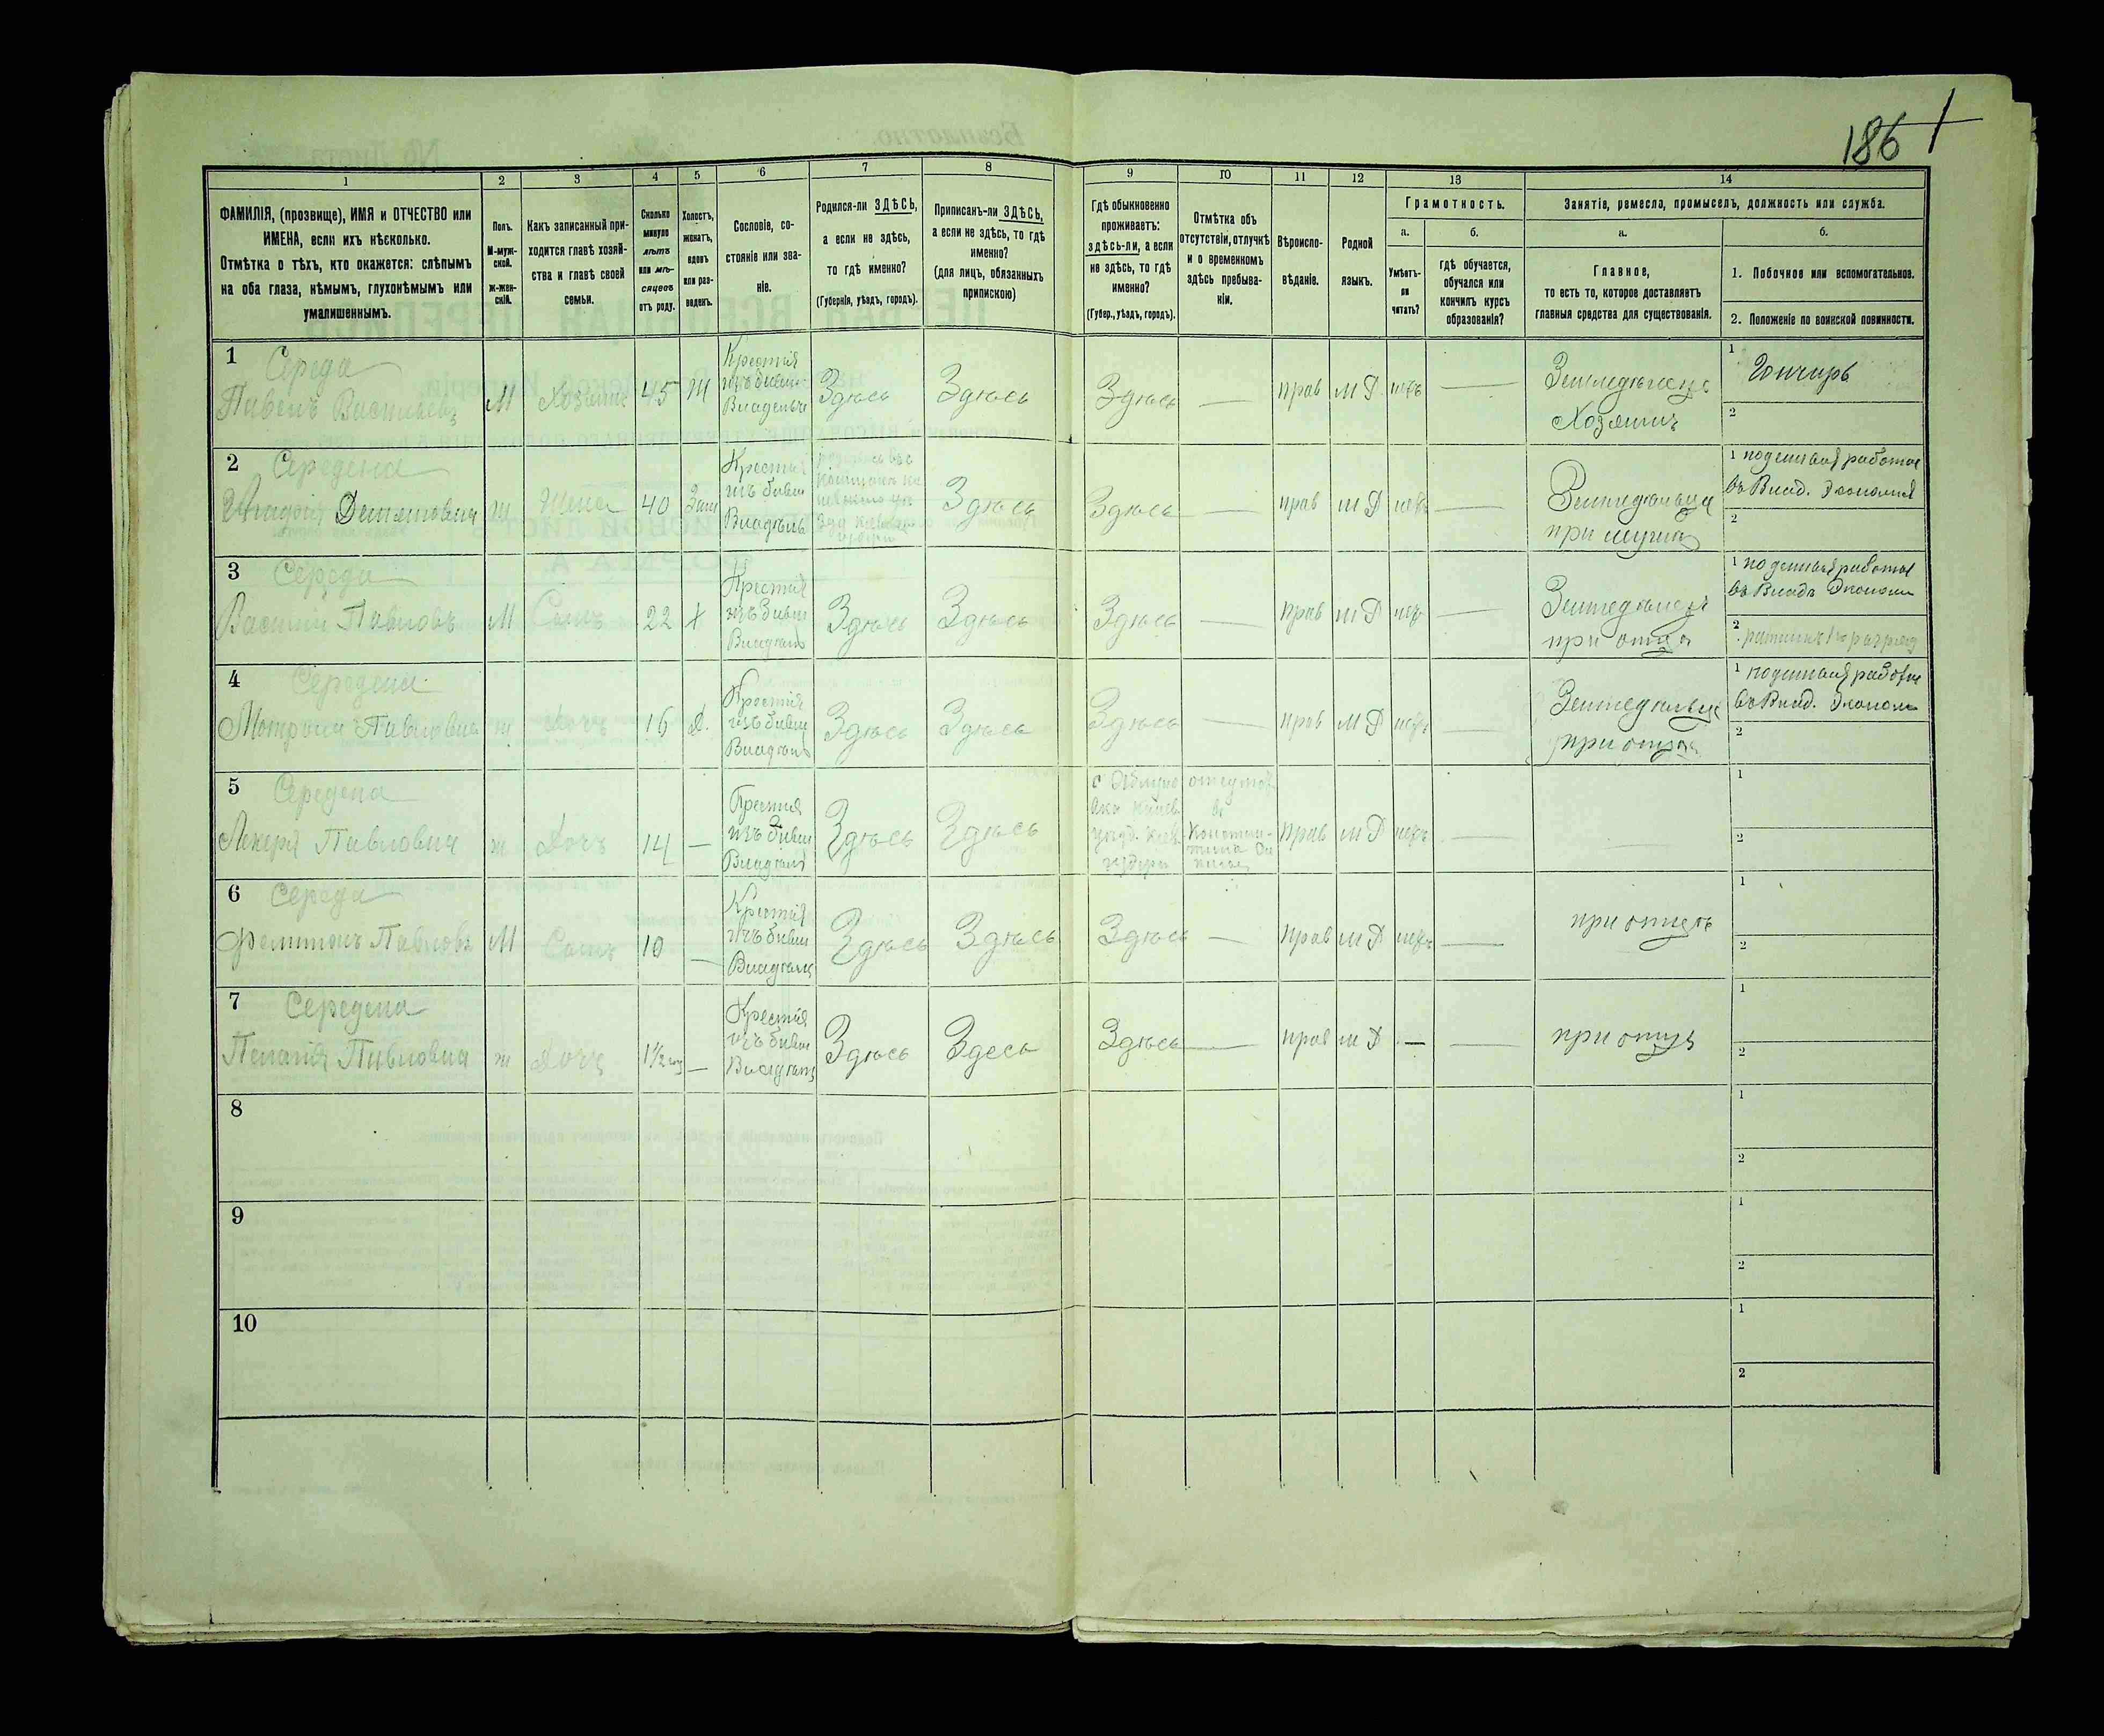 186
1
2
3
4
5
6
7
8
9
10
11
12
13
14
ФАМИЛІЯ, (прозвище), ИМЯ и ОТЧЕСТВО или
ИМЕНА, если ихъ нѣсколько.
Отмѣтка о тѣхъ, кто окажется: слѣпымъ
на оба глаза, нѣмымъ, глухонѣмымъ или
умалишеннымъ.
Полъ.
М-муж-
ской.
ж-жен-
скій.
Какъ записанный при-
ходится главѣ хозяй-
ства и главѣ своей
семьи.
Сколько
минуло
лѣтъ
или мѣ-
сяцевъ
отъ роду.
Холостъ,
женатъ,
вдовъ
или раз-
веденъ.
Сословіе, со-
стояніе или зва-
ніе.
Родился-ли ЗДѢСЬ,
а если не здѣсь,
то гдѣ именно?
(Губернія, уѣздъ, городъ).
Приписанъ-ли ЗДѢСЬ,
а если не здѣсь, то гдѣ
именно?
(для лицъ, обязанныхъ
припискою)
Гдѣ обыкновенно
проживаетъ:
здѣсь-ли, а если
не здѣсь, то гдѣ
именно?
(Губер., уѣздъ, городъ).
Отмѣтка объ
отсутствіи, отлучкѣ
и о временномъ
здѣсь пребыва-
ніи.
Вѣроиспо-
вѣданіе.
Родной
языкъ.
Грамотность.
а.
Умѣетъ-
ли
читать?
б.
гдѣ обучается,
обучался или
кончилъ курсъ
образованія?
Занятіе, ремесло, промыселъ, должность или служба.
а.
Главное,
то есть то, которое доставляетъ
главныя средства для существованія.
б.
1. Побочное или вспомогательное.
2. Положеніе по воинской повинности.
1
Середа
Павелъ Васильевъ
М
Хозяинъ
45
Ж
Крестья
изъ бывш
Здѣсь
Здѣсь
Здѣсь
—
прав
М Р
нетъ
—
Земледѣлецъ
Хозяинъ
1 Гончаръ
2
2
Середена
Демяновна
ж
Жена
40
Зам
Крестья
изъ бывш
Владѣль
Здѣсь
Здѣсь
—
прав
М Р
нетъ
—
при мужѣ
1 поденная работа
въ Влад. Экономіи
2
3
Середа
Василий Павловъ
М
Сынъ
22
Х
Крестья
изъ бывш
Здѣсь
Здѣсь
Здѣсь
—
прав
М Р
нетъ
—
Земледѣлецъ
при отцѣ
1 поденная работа
въ Влад. Экономи
2
4
Середена
Мотрона Павловна
ж
Дочь
16
Д.
Крестья
изъ бывш
Здѣсь
Здѣсь
Здѣсь
—
прав
М Р
нетъ
—
при отцѣ
1 поденная работа
въ Влад. Эконом
2
5
Середена
Павловна
ж
Дочь
14
—
Крестья
изъ бывш
Здѣсь
Здѣсь
прав
М Р
нетъ
—
—
1
2
6
Середа
Павловъ
М
Сынъ
10
—
Крестья
изъ бывш
Здѣсь
Здѣсь
Здѣсь
—
прав
М Р
нетъ
—
при отцѣ
1
2
7
Середена
Пелагія Павловна
ж
Дочь
1½
—
Крестья
изъ бывш
Здѣсь
Здесь
Здѣсь
—
прав
М Р
—
—
при отцѣ
1
2
8
1
2
9
1
2
10
1
2